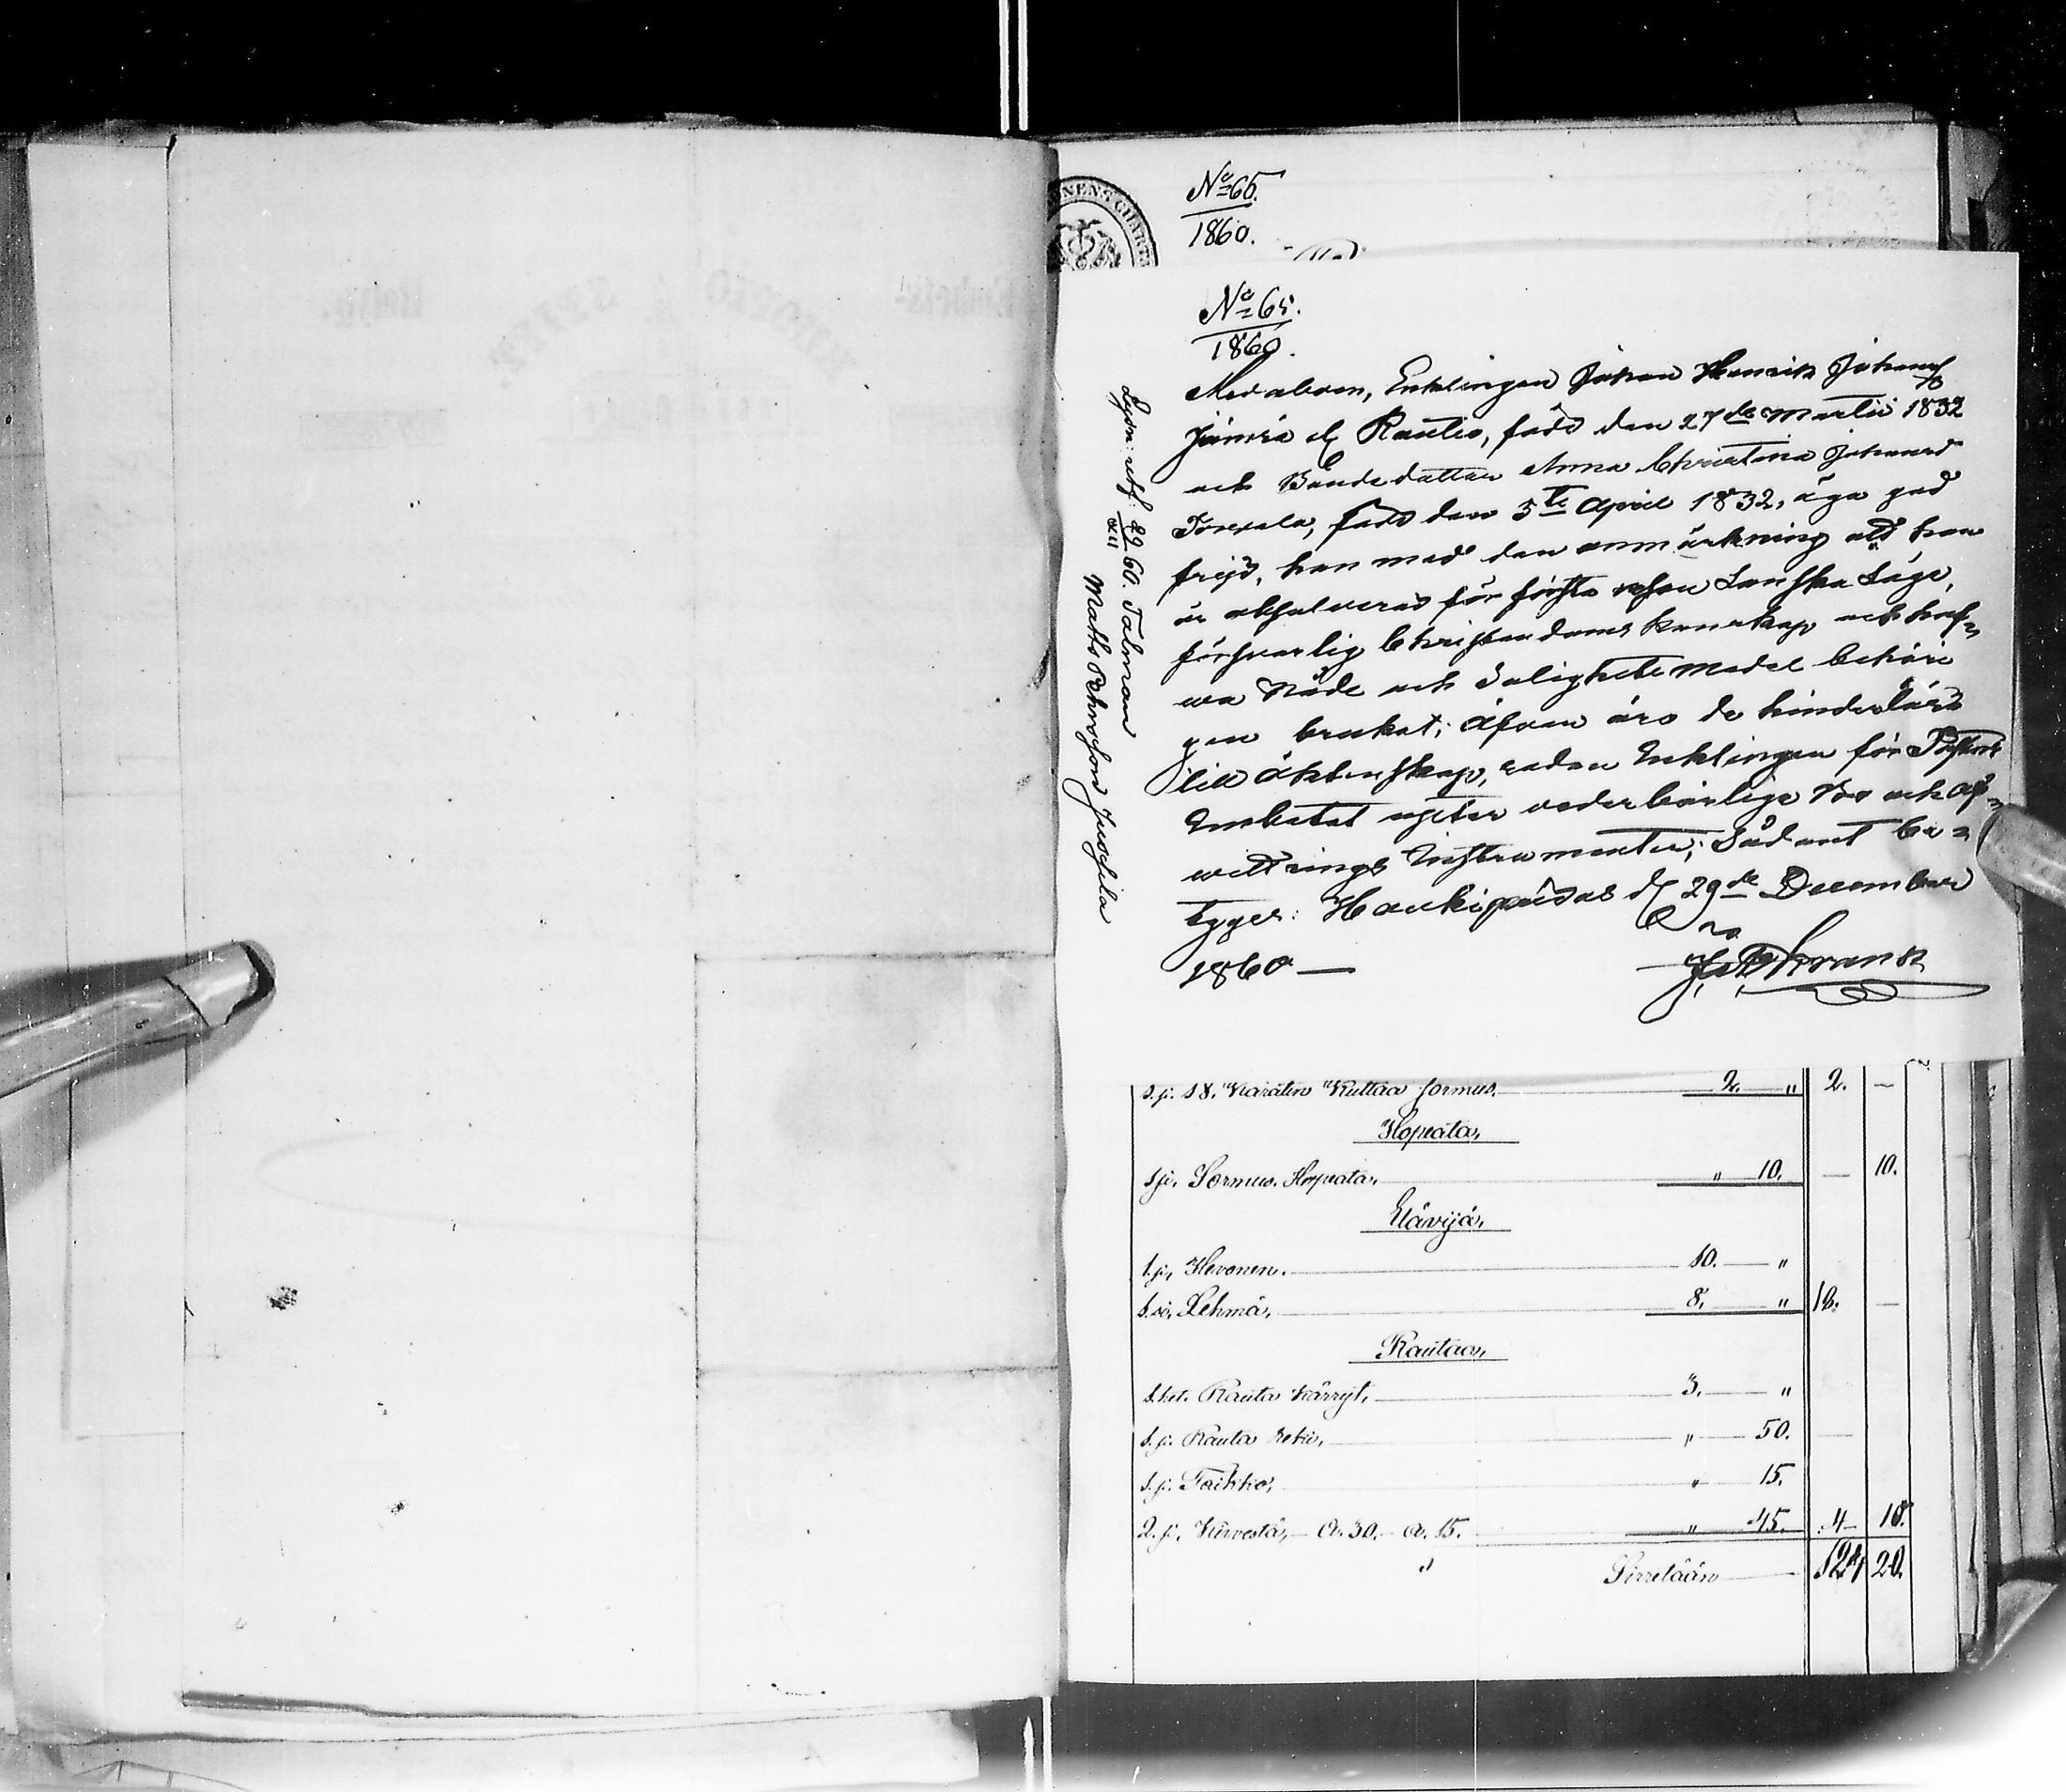 No 65.
1860.
No 65.
1860.
Medaboen, Enklingen Johan Henrik Johans
Jämsä el Rautio, född den 27de Martii 1832
och Bondedotter Anna Christina Johansd
Torvela, född den 5te April 1832, äga god
frejd, han med den anmärkning att han
är absolverad för första resan Lönska Läge,
försvarlig Christendoms kunskap och haf=
va Nåde och Salighetemedel behöri
gen brukat; äfven äro de hinderlöse
till äktenskap, sedan Enklingen för Pastors
Embetet upter vederbörlige Bo och Af=
wittrings Instrumenter; Sådant be=
tyger: Haukipudas d 29de December
1860 —
Lysn: utf: 29/XII 60. Talman
Matts Pehrsson Jussila
1.p. 18. Karatin Kultaa sormus. 2. " 2. —
Hopeata,
1 p. Sormus. Hopeata. " 10. — 10.
Elävijä,
1.p, Hevonen. 10. "
1.p, Lehmä, 8. " 18. —
Rautaa,
1.ket. Rauta kärryt, 3. "
1.p. Rauta reki, " 50.
1.p. Faikko, " 15.
2.p. Kirvestä, a. 30. a. 15. " 45. 4 10.
Sirretään 124 20.